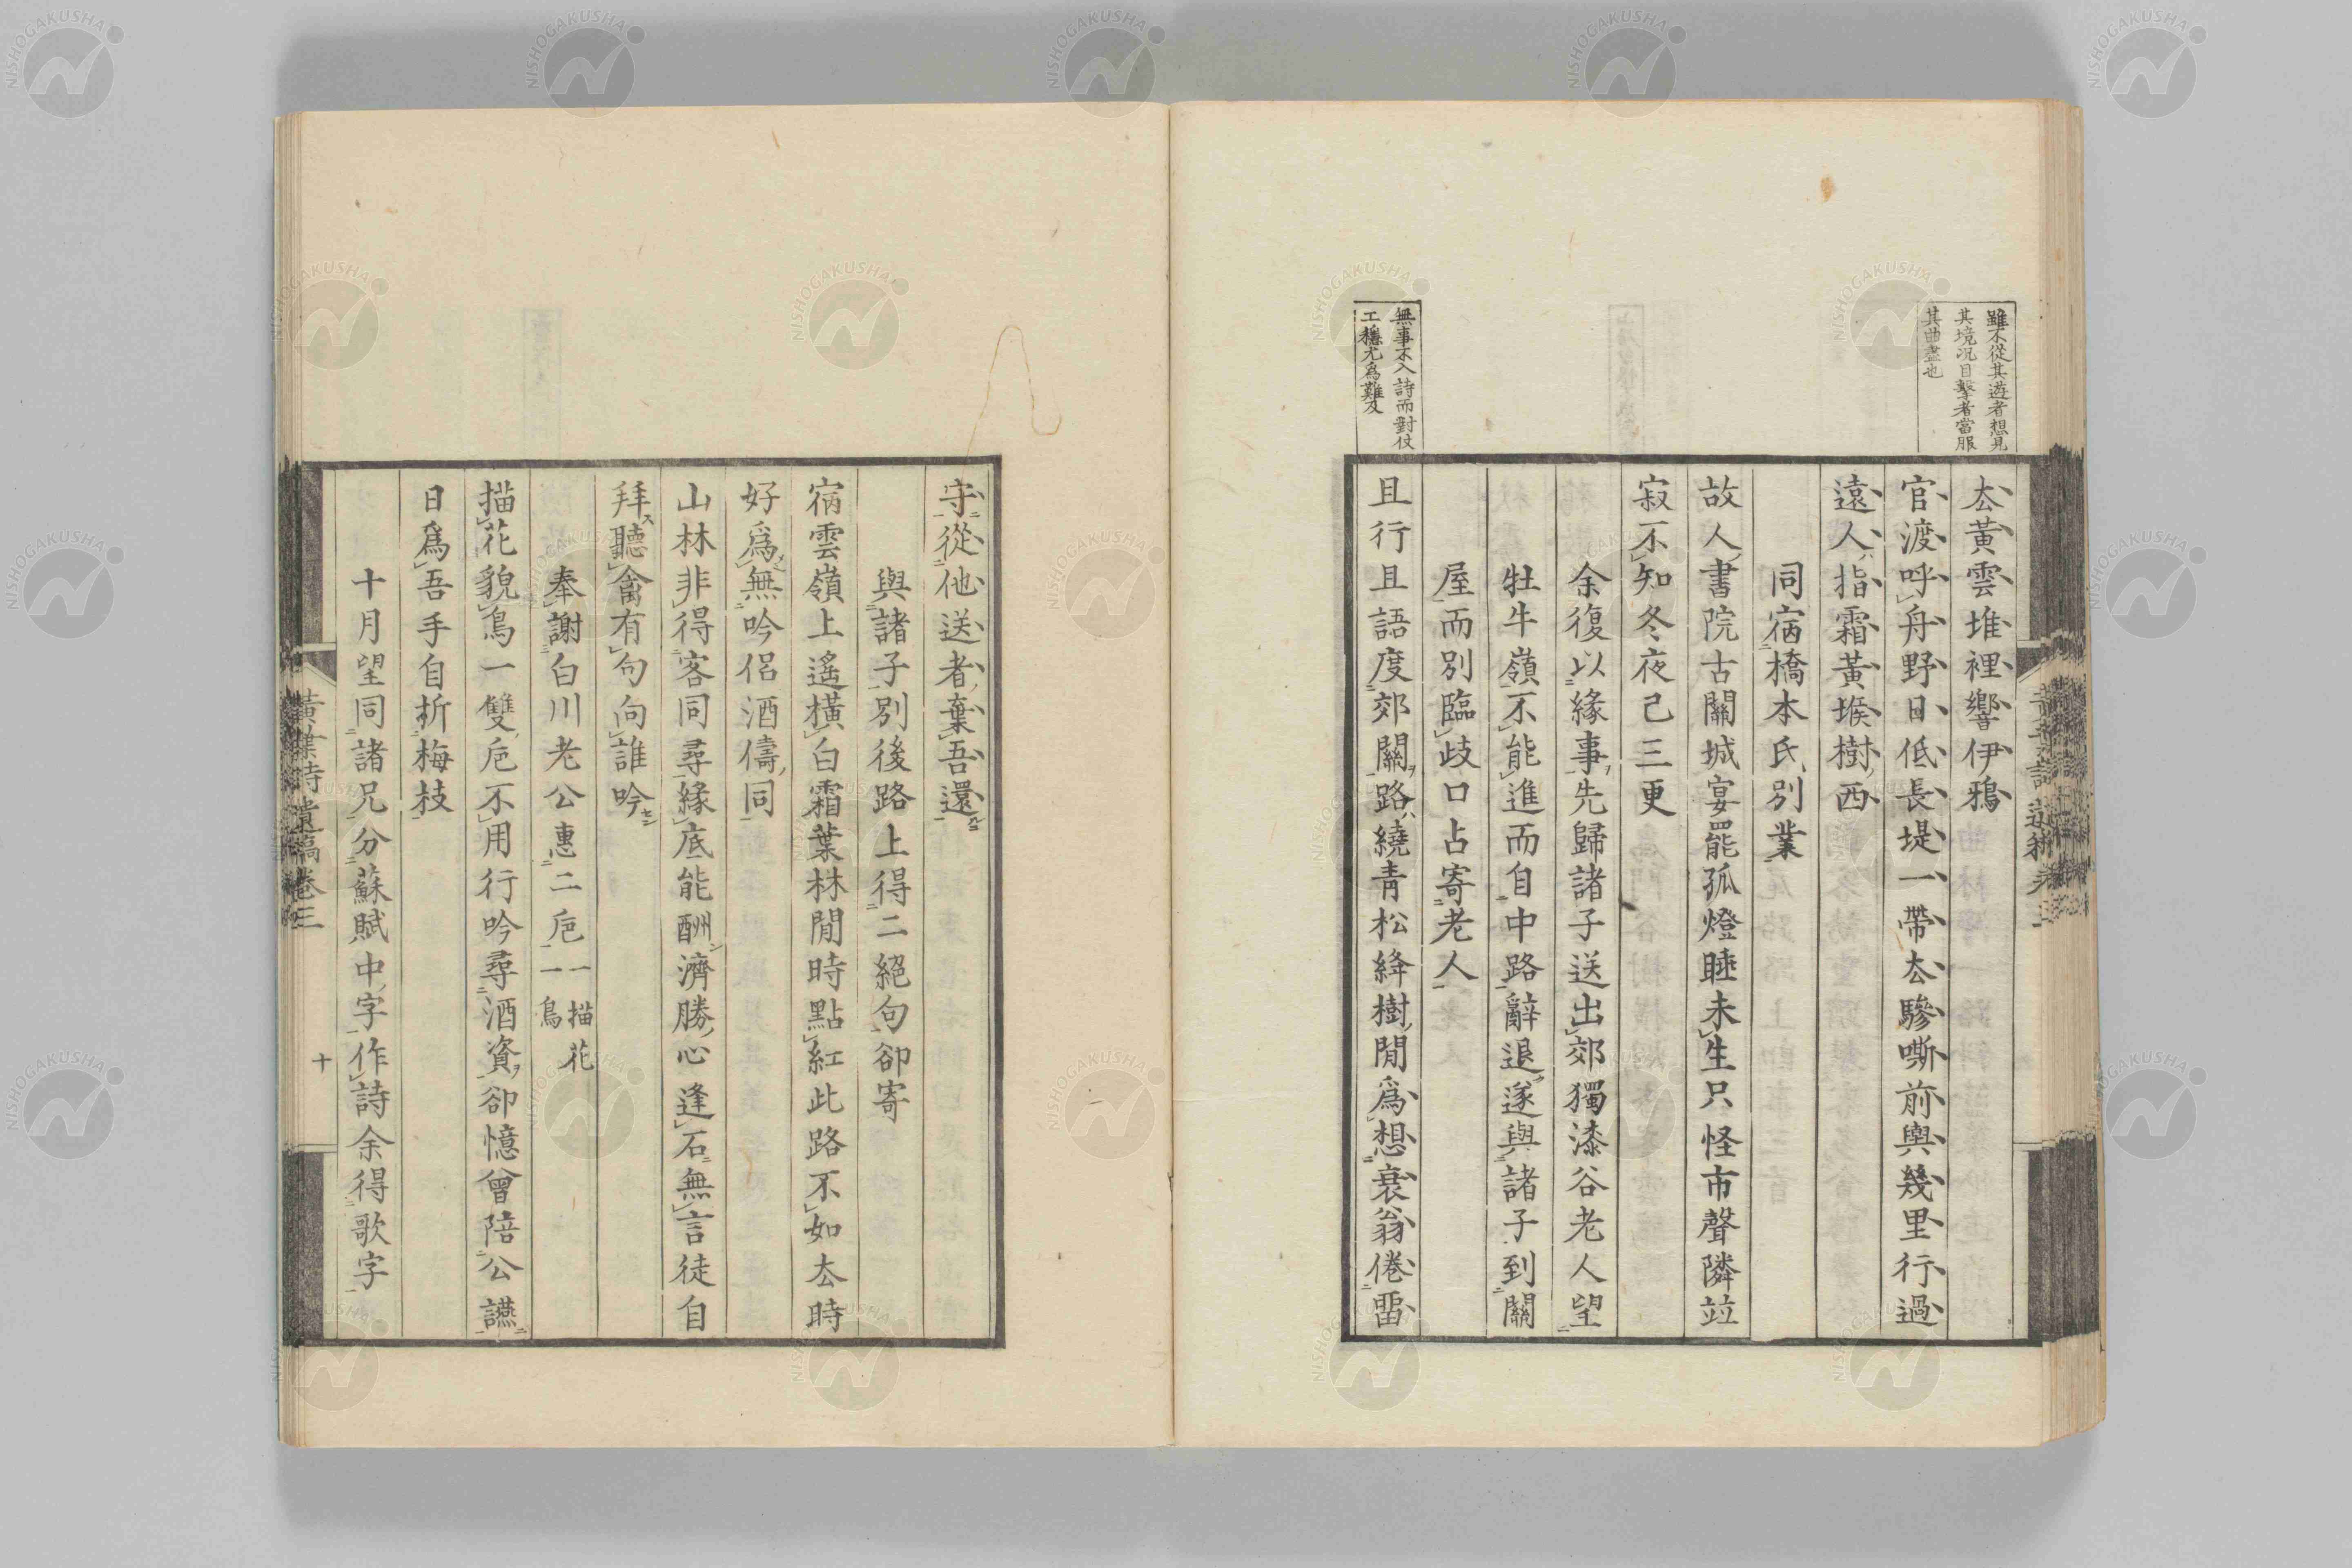 雖不從其遊者想見
其境況目擊者當服
其曲盡也
無事不入詩而對仗
工穩尤爲難及
厺黃雲堆裡響伊鴉
官渡呼舟野日低長堤一帶厺驂嘶前輿幾里行過
遠人指霜黃堠樹西
同宿橋本氏別業
故人書院古關城宴罷孤燈睡未生只怪市聲隣竝
寂不知冬夜已三更
余復以緣事先歸諸子送出郊獨漆谷老人望
牡牛嶺不能進而自中路辭退遂與諸子到關
屋而別臨歧口占寄老人
且行且語度郊關路繞靑松絳樹閒爲想衰翁倦畱
守從他送者棄吾還
與諸子別後路上得二絕句卻寄
宿雲嶺上遙橫白霜葉林閒時點紅此路不如厺時
好爲無吟侶酒儔同
山林非得客同尋緣底能酬濟勝心逢石無言徒自
拜聽禽有句向誰吟
奉謝白川老公惠二巵一描花一鳥
描花貌鳥一雙巵不用行吟尋酒資卻憶曾陪公讌
日爲吾手自折梅枝
十月望同諸兄分蘇賦中字作詩余得歌字
黃葉詩遺稿卷三
十
NISHOGAKUSHA